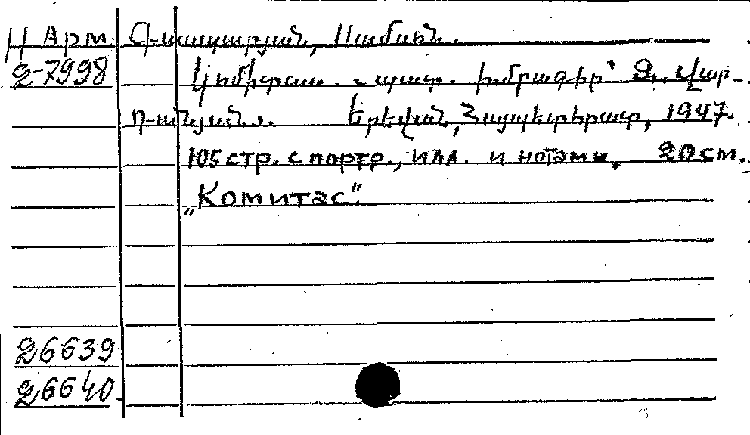 Н Арм. Գասպարյան, Սամսոն.
2-7998 Կոմիտաս. - պատ. խմբագիր՝ Վար-
դանյան. Երևան, Հայպետհրատ, 1947.
105 стр. с портр., илл. и нотами. 20 см.
„Комитас".
26639
26640